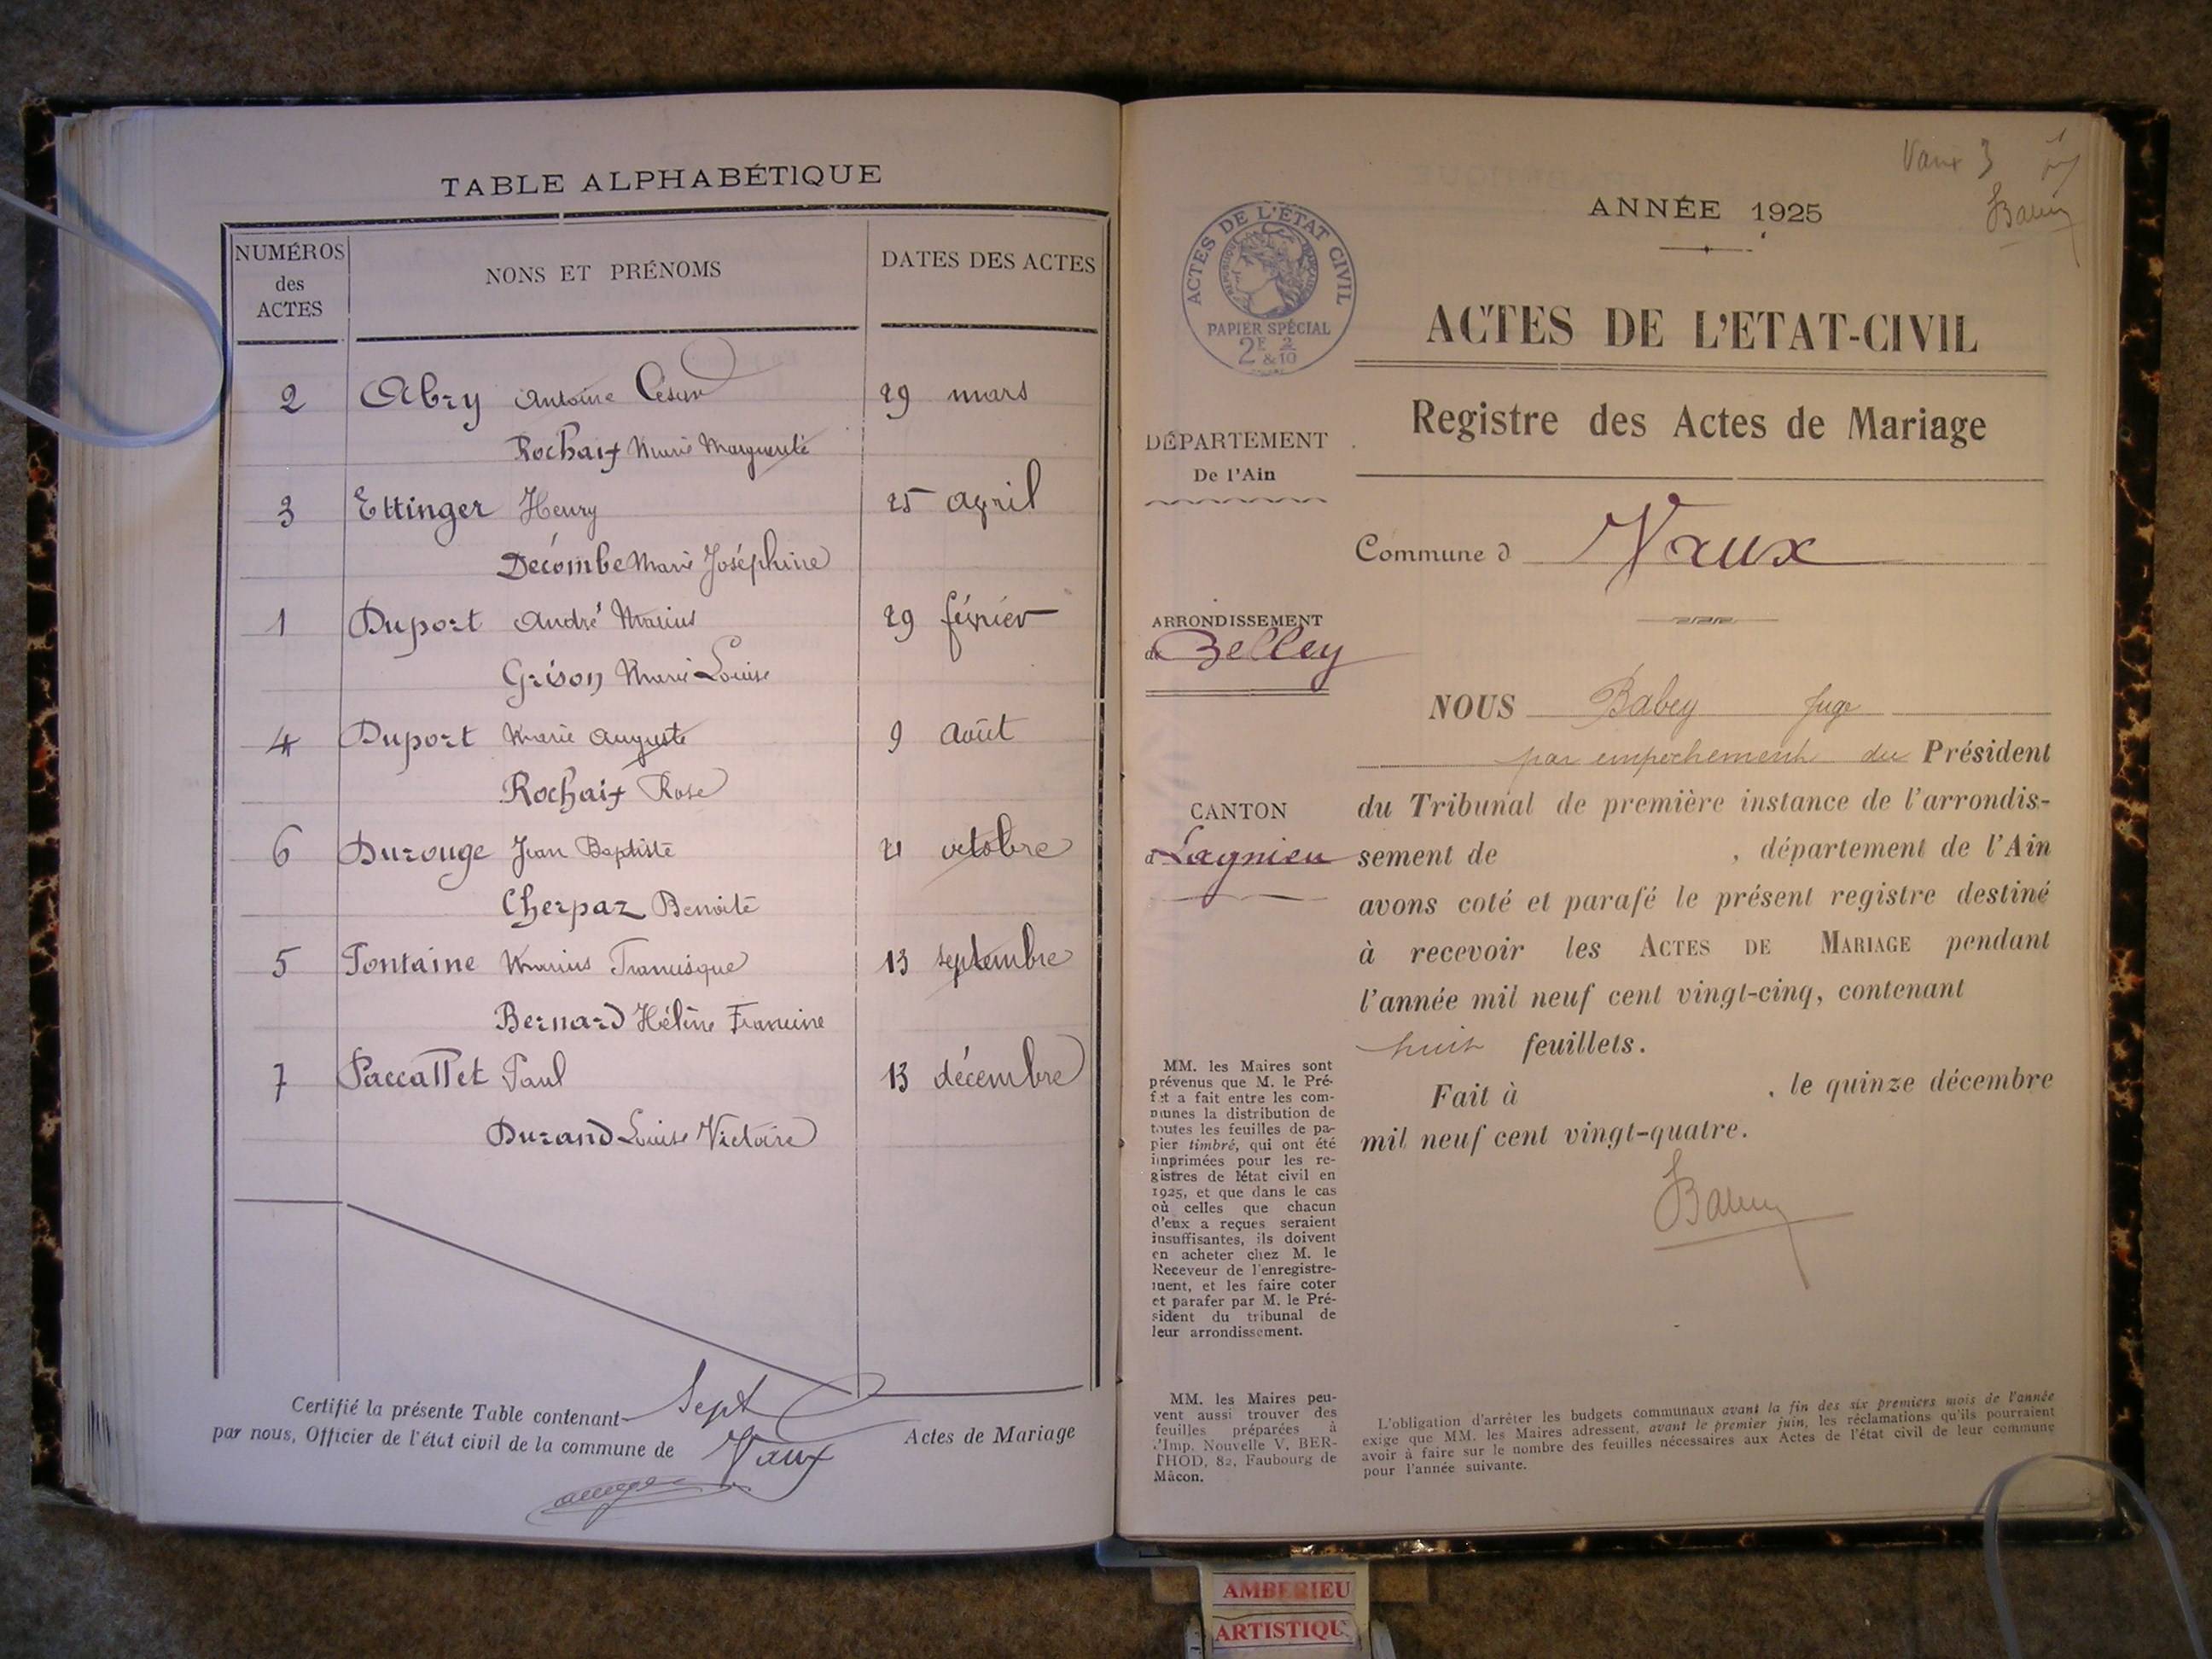 TABLE ALPHABÉTIQUE
NUMÉROS
des
ACTES
NONS ET PRÉNOMS
DATES DES ACTES
2 Abry Antoine César 29 mars
Rochaix Marie Marguerite
3 Ettinger Henry 25 avril
Decombe Marie Joséphine
1 Duport André Marius 29 février
Grison Marie Louise
4 Duport Marie Auguste 9 Août
Rochaix Rose
6 Durouge Jean Baptiste 21 octobre
Cherpaz Benoite
5 Fontaine Marius Francisque 13 septembre
Bernard Hélène Francine
7 Paccallet Paul 13 décembre
Durand Louise Victoire
Certifié la présente Table contenant Sept
Actes de Mariage
par nous, Officier de l'état civil de la commune de Vaux
Vaux 3
Babey
ANNÉE 1925
ACTES DE L'ÉTAT CIVIL
RÉPUBLIQUE FRANÇAISE
PAPIER SPÉCIAL
2E 2
& 10
ACTES DE L'ETAT-CIVIL
Registre des Actes de Mariage
DÉPARTEMENT
De l'Ain
Commune d Vaux
ARRONDISSEMENT
de Belley
CANTON
d Lagnieu
NOUS Babey Juge
par empêchement du Président
du Tribunal de première instance de l'arrondis-
sement de , département de l'Ain
avons coté et parafé le présent registre destiné
à recevoir les ACTES DE MARIAGE pendant
l'année mil neuf cent vingt-cinq, contenant
huit feuillets.
Fait à , le quinze décembre
mil neuf cent vingt-quatre.
Babey
MM. les Maires sont
prévenus que M. le Pré-
fet a fait entre les com-
munes la distribution de
toutes les feuilles de pa-
pier timbré, qui ont été
imprimées pour les re-
gistres de l'état civil en
1925, et que dans le cas
où celles que chacun
d'eux a reçues seraient
insuffisantes, ils doivent
en acheter chez M. le
Receveur de l'enregistre-
ment, et les faire coter
et parafer par M. le Pré-
sident du tribunal de
leur arrondissement.
MM. les Maires peu-
vent aussi trouver des
feuilles préparées à
l'Imp. Nouvelle V. BER-
THOD, 82, Faubourg de
Mâcon.
L'obligation d'arrêter les budgets communaux avant la fin des six premiers mois de l'année
exige que MM. les Maires adressent, avant le premier juin, les réclamations qu'ils pourraient
avoir à faire sur le nombre des feuilles nécessaires aux Actes de l'état civil de leur commune
pour l'année suivante.
AMBERIEU
ARTISTIQU